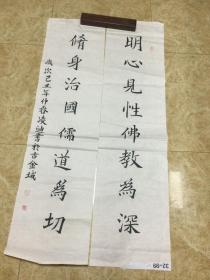 明心見性佛教為深
脩身治國儒道為切
歲次己丑年仲春凌迪書於古金城
32-99